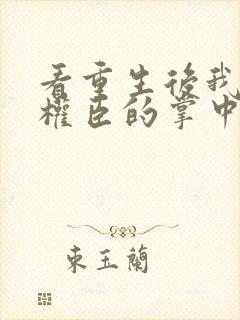 看重生後我
權臣的掌中
東玉蘭